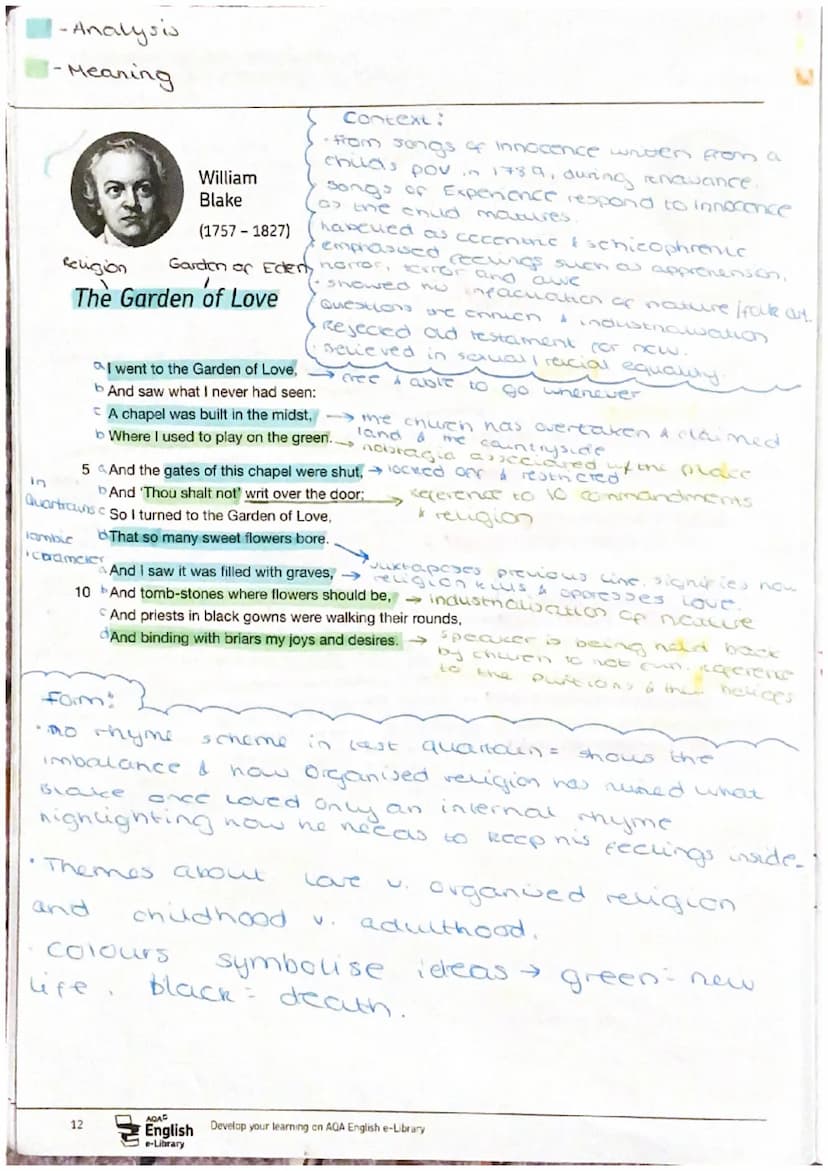 - Analysis
- Meaning
Context:
· From songs of innocence written from a
childs pov in 1789, during renaissance.
songs of Experience respond to innocence
as the child matures.
labelled as eccentric & schizophrenic
emphasised feelings such as apprehension,
horror, terror and awe
· showed no infatuation of nature /folk art.
questions the church & industrialisation
Rejected old testament for new.
· believed in sexual / racial equality.
William
Blake
(1757 – 1827)
Religion Garden of Eden
The Garden of Love
a I went to the Garden of Love, → free & able to go whenever
b And saw what I never had seen:
c A chapel was built in the midst, → the church has overtaken & claimed
land & the countryside
b Where I used to play on the green. → nostalgia associated w/ the place
5 a And the gates of this chapel were shut, → locked off & restricted
b And 'Thou shalt not' writ over the door; → reference to 10 commandments
& religion
in
quartrains
c So I turned to the Garden of Love,
iambic
b That so many sweet flowers bore. → juxtaposes previous line, signifies how
religion kills & oppresses love.
a And I saw it was filled with graves,
10 b And tomb-stones where flowers should be, → industrialisation of nature
c And priests in black gowns were walking their rounds,
d And binding with briars my joys and desires. → speaker is being held back
by church to not sin. reference
to the puritions & their beliefs
Form:
· no rhyme scheme in last quartain = shows the
imbalance & how organised religion has ruined what
Blake once loved only an internal rhyme
highlighting how he needs to keep his feelings inside.
· Themes about love v. organised religion
and childhood v. adulthood.
· colours symbolise ideas → green = new
life. black = death.
12
AQA
English
e-Library
Develop your learning on AQA English e-Library